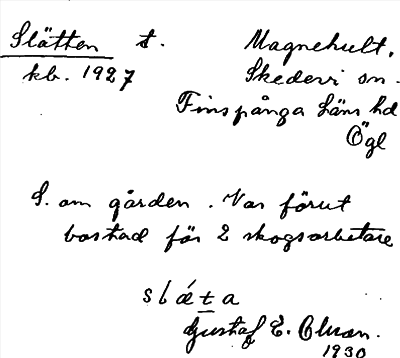 Slätten t. Magnehult,
kb. 1927 Skedevi sn.
Finspånga läns hd
Ögl
S. om gården. Var förut
bostad för 2 skogsarbetare
Gustaf E. Olson.
1930